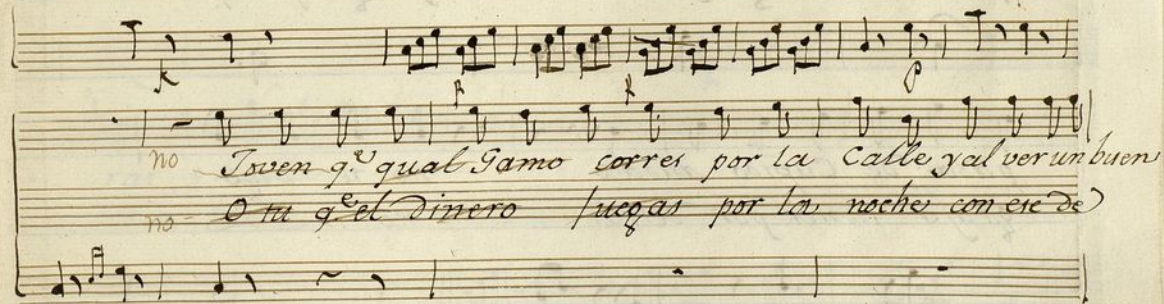 no Joven q.e qual Gamo corres por la Calle y al ver un buen
no - O tu q.e el dinero Juegas por la noche con ese de